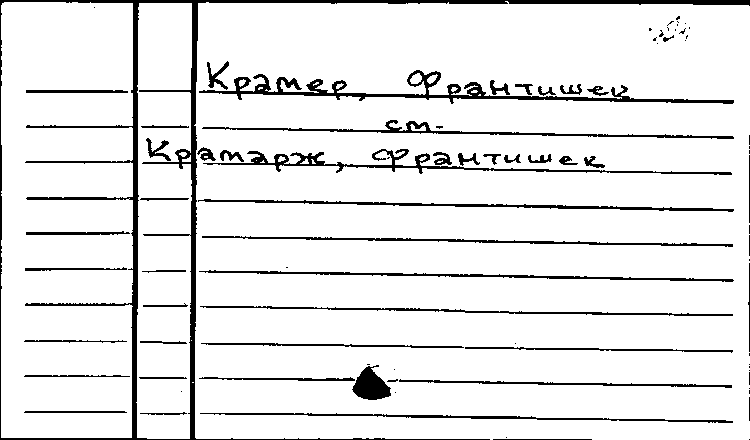 Крамер, Франтишек
см.
Крамарж, Франтишек